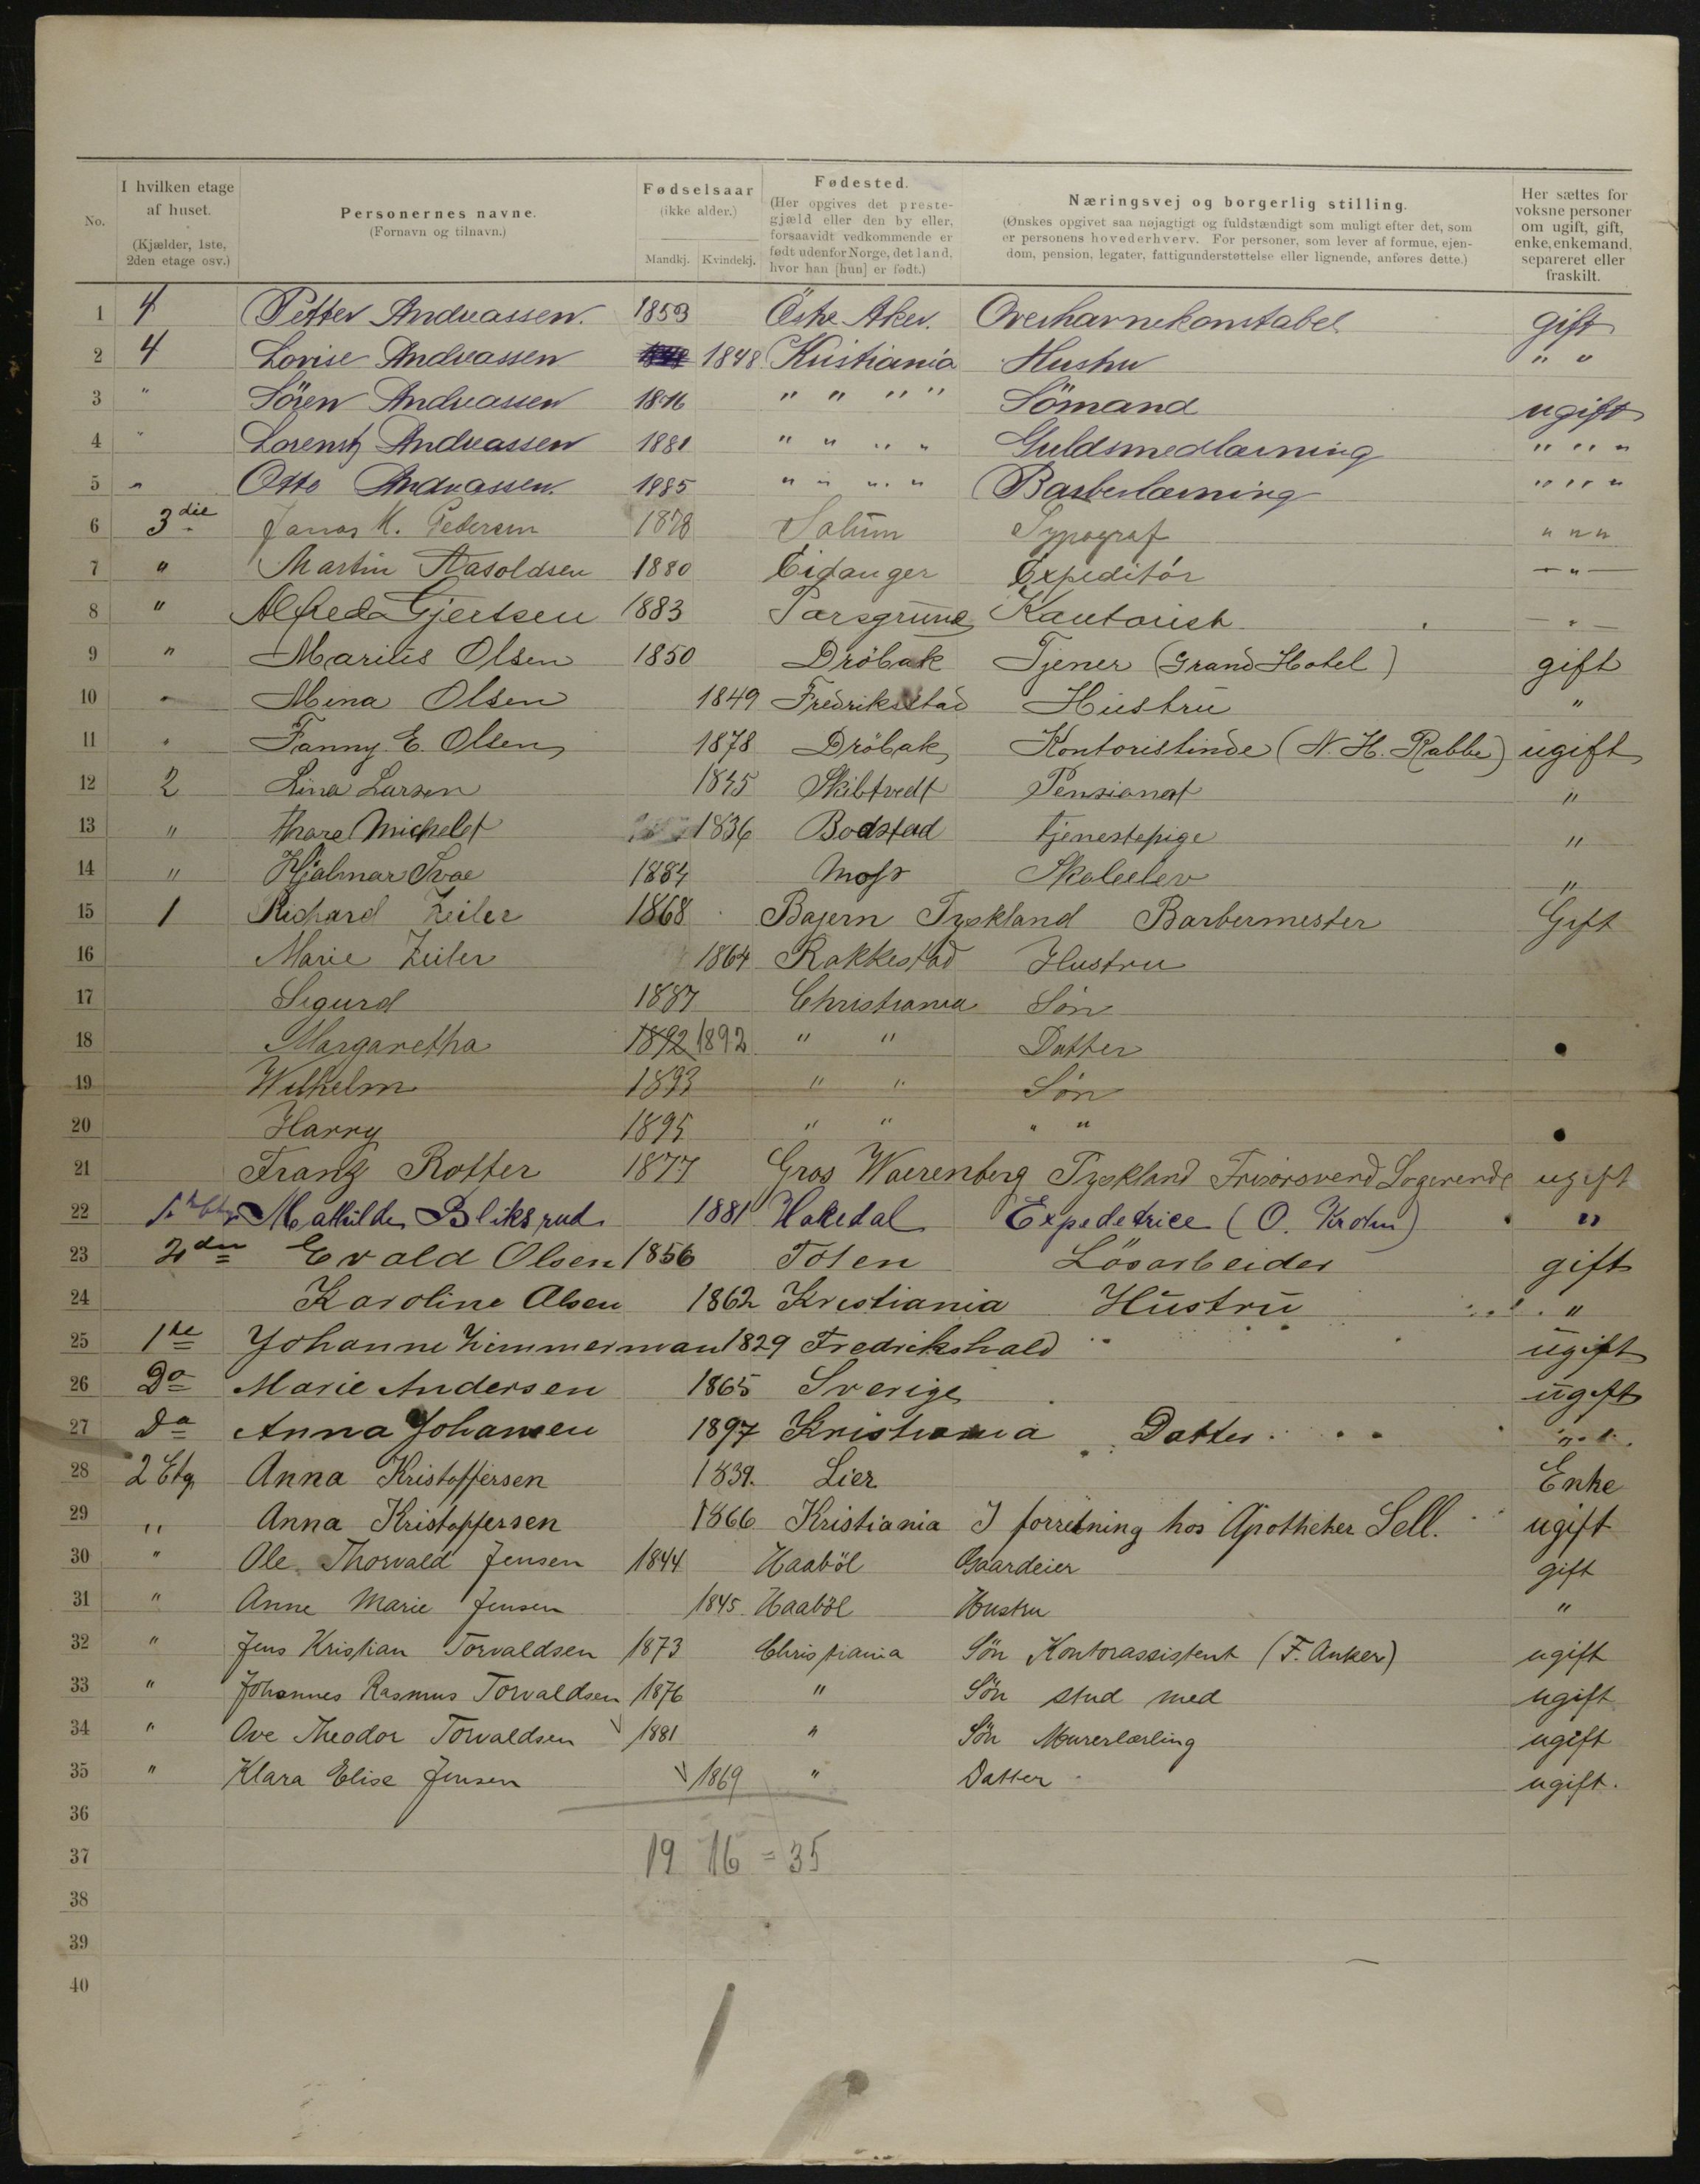 No. I hvilken etage af huset. (Kjælder, 1ste, 2den etage osv.) Personernes navne. (Fornavn og tilnavn.) Fødselsaar (ikke alder.) Mandkj. Kvindekj. Fødested. (Her opgives det prestegjæld eller den by eller, forsaavidt vedkommende er født udenfor Norge, det land, hvor han [hun] er født.) Næringsvej og borgerlig stilling. (Ønskes opgivet saa nøjagtigt og fuldstændigt som muligt efter det, som er personens hovederhverv. For personer, som lever af formue, ejendom, pension, legater, fattigunderstøttelse eller lignende, anføres dette.) Her sættes for voksne personer om ugift, gift, enke, enkemand, separeret eller fraskilt.
1 4 Petter Andreassen. 1853 Östre Aker. Overhavnekonstabel gift
2 4 Lovise Andreassen 1848 Kristiania Hustru " "
3 " Sören Andreassen 1876 " " " " Sömand ugift
4 " Lorentz Andreassen 1881 " " " " Guldsmedlærning " " "
5 " Otto Andreassen. 1885 " " " " Barberlærning " " "
6 3die Jonas K. Pedersen 1878 Solum Typograf " " "
7 " Martin Aasoldsen 1880 Eidanger Expeditör — " —
8 " Alfred Gjertsen 1883 Porsgrund Kontorist — " —
9 " Marius Olsen 1850 Dröbak Tjener (Grand Hotel) gift
10 " Mina Olsen 1849 Fredrikstad Hustru "
11 " Fanny E. Olsen 1878 Dröbak Kontoristinde (N. H. Rabbe) ugift
12 2 Lina Larsen 1845 Skibtvedt Pensionat "
13 " Thora Michelet 1836 Bodstad tjenestepige "
14 " Hjalmar Svae 1884 Moss Skoleelev "
15 1 Richard Zeiler 1868 Bajern Tyskland Barbermester Gift
16 Marie Zeiler 1864 Rakkestad Hustru
17 Sigurd 1887 Christiania Sön
18 Margaretha 1892 1892 " " Datter
19 Wilhelm 1893 " " Sön
20 Harry 1895 " " " "
21 Franz Rotter 1877 Gros Waerenberg Tyskland Frisörsvend Logerende ugift
22 Mathilde Bliksrud 1881 Hakedal Expeditrice (O. Krohn) "
23 2den Evald Olsen 1856 Toten Lösarbeider gift
24 Karoline Olsen 1862 Kristiania Hustru "
25 1ste Johanne Zimmerman 1829 Fredrikshald ugift
26 Do Marie Andersen 1865 Sverige ugift
27 Do Anna Johansen 1897 Kristiania Datter "
28 2 Etg Anna Kristoffersen 1839. Lier Enke
29 " Anna Kristoffersen 1866 Kristiania I forretning hos Apotheker Sell. ugift
30 " Ole Thorvald Jensen 1844 Haaböl Gaardeier gift
31 " Anne Marie Jensen 1845 Haaböl Hustru "
32 " Jens Kristian Torvaldsen 1873 Christiania Sön Kontorassistent (F. Anker) ugift
33 " Johannes Rasmus Torvaldsen 1876 " Sön stud med ugift
34 " Ove Theodor Torvaldsen 1881 " Sön Murerlærling ugift
35 " Klara Elise Jensen 1869 " Datter ugift.
36
37 19 16 = 35
38
39
40